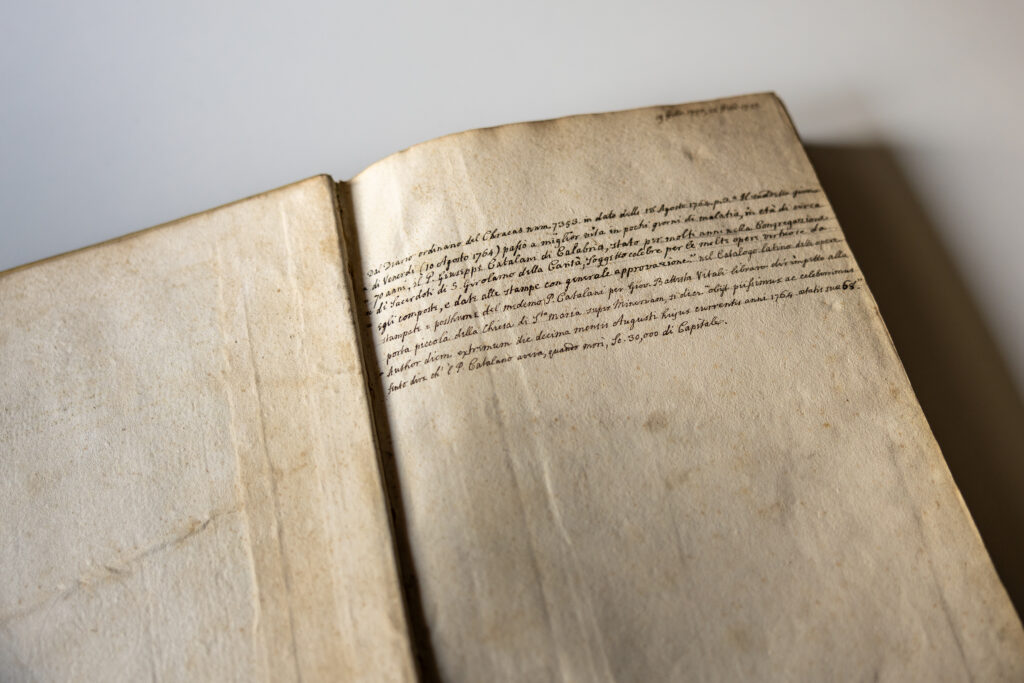 Dal Diario ordinario del Chracas num. 7353. in data delli 18 Agosto 1764. p. 2.
di Venerdì (10 Agosto 1764) passò a miglior vita in pochi giorni di malatia, in età di circa
70 anni, il P. Giuseppe Catalani di Calabria, stato per molti anni nella Congregazione
di Sacerdoti di S. Girolamo della Carità, soggetto celebre per le molti operi virtuose da
egli composte, e date alle stampe con generale approvazione". Nel Catalogo latino delle opera
stampate e posthume del medemo P. Catalani per Giov. Battista Vitali libraro dirimpetto alla
porta piccola della Chiesa di S.ta Maria supra Minervam, si dice: "obijt piissimus ac celeberrimus
Author diem extremum die decima mensis Augusti hujus currentis anni 1764 ætatis suæ 68."
sento dire ch' il P. Catalano aveva, quando morì, Sc. 30,000 di Capitale.